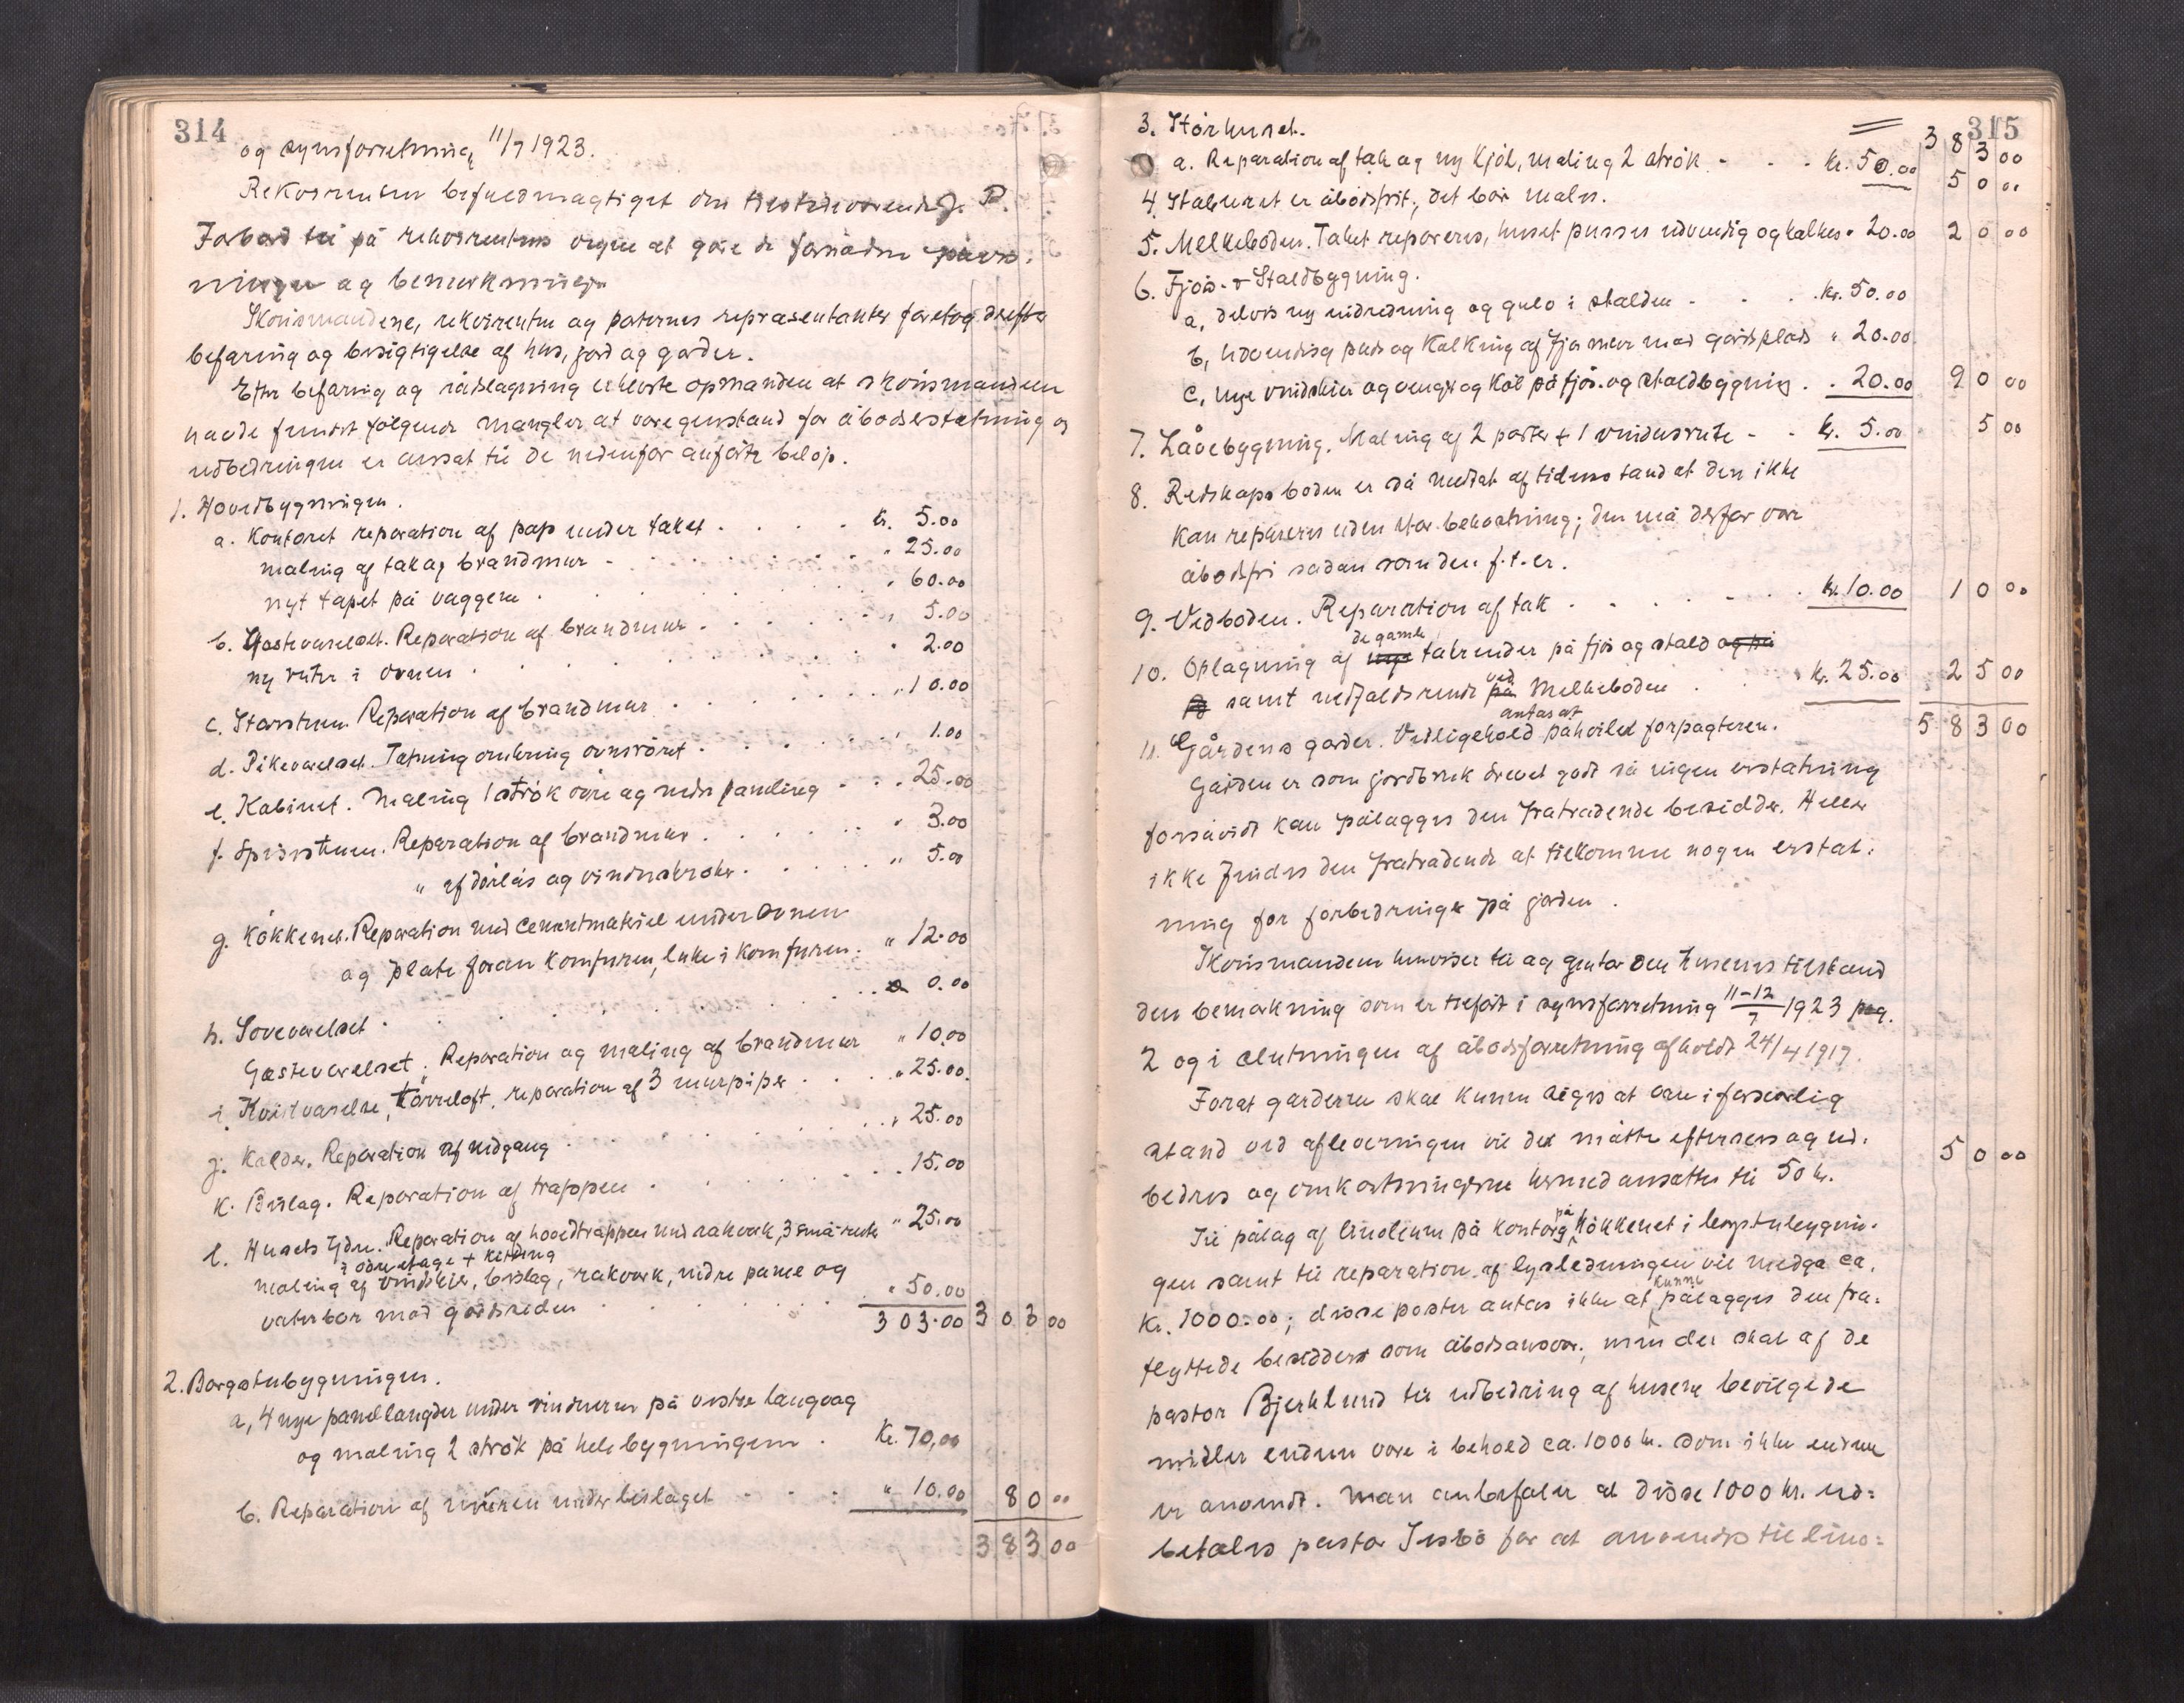 314
og synsforretning 11/7 1923.
Rekvirenten befuldmægtiget den tilstedeværende J. P.
Forbord til på rekvirentens vegne at gøre de fornødne påvis-
ninger og bemerkninger
Skønsmændene, rekvirenten og parternes representanter foretog derefter
befaring og besigtigelse af hus, jord og gærder.
Efter befaring og rådslagning erklærte opmanden at skønsmændene
havde fundet følgende mangler at være gjenstand for åbodserstatning og
udbedringen er ansat til de nedenfor anførte beløp.
1. Hovedbygningen.
a. Kontoret reparation af pap under taket . . . . kr. 5.00
maling af tak og brandmur - . . . . . . " 25.00
nyt tapet på væggene . . . . . . " 60.00
b. Gæsteværelset. Reparation af brandmur . . . . . " 5.00
ny ruter i ovnen . . . . . . " 2.00
c. Storstuen. Reparation af brandmur . . . . . . " 10.00
d. Pikeværelset. Tætning omkring ovnsrøret . . . . . " 1.00
e. Kabinet. Maling 1 strøk øvre og nedre paneling . . . 25.00
f. Spisestuen. Reparation af brandmur . . . . . " 3.00
" af dørlås og vinduskroker . . . . . " 5.00
g. Køkkenet. Reparation med cementmateriel under ovnen
og plate foran komfuren, luke i komfuren. " 12.00
h. Soveværelset . . . . . . . 0.00
Gæsteværelset. Reparation og maling af brandmur " 10.00
i. Kvistværelse, tørreloft, reparation af 3 murpiper . . . " 25.00.
j. Kælder. Reparation af nedgang . . . . . . " 25.00
k. Bislag. Reparation af trappen . . . . . . 15.00
l. Husets Ydre. Reparation af hovedtrappen med rækverk, 3 små ruter " 25.00
i øvre etage + kitting
maling af vindskier, bislag, rækverk, nedre panel og
vaterbor mod gårdsiden . . . . . . " 50.00
303.00 303 00
2. Borgstubygningen.
a, 4 nye panellængder under vinduerne på vestre langvæg
og maling 2 strøk på hele bygningen . Kr. 70,00
b. Reparation af muren under bislaget - . . . " 10.00 80 00
383 00
315
383 00
3. Størhuset.
a. Reparation af tak og ny kjøl, maling 2 strøk - . . . kr. 50.00 50 00
4. Stabburet er åbodsfrit, det bør males.
5. Melkeboden. Taket repareres, huset pusses udvendig og kalkes " 20.00 20 00
6. Fjøs- & Staldbygning.
a, delvis ny indredning og gulv i stalden - . . . kr. 50.00
b, Udvendig puds og kalkning af fjøsmur mod gårdsplads " 20.00
c, nye vindskier og og køl på fjøs- og staldbygning . . 20.00 90 00
7. Låvebygning. Maling af 2 porter + 1 vindusrute - . kr. 5.00 5 00
8. Redskapsboden er så medtat af tidens tand at den ikke
kan repareres uden stor bekostning; den må derfor være
åbodsfri sådan som den f.t. er.
9. Vedboden. Reparation af tak . . . . . . kr. 10.00 10 00
de gamle
10. Oplægning af nye takrender på fjøs og stald og på
ved
på samt nedfaldsrende på Melkeboden . . kr. 25.00 25 00
583 00
antas at
11. Gårdens gærder. Vedligehold påhvilet forpagteren.
Gården er som jordbruk drevet godt så ingen erstatning
forsåvidt kan pålægges den fratrædende besidder. Heller
ikke findes den fratrædende at tilkomme nogen erstat-
ning for forbedringer på jorden .
Skønsmændene henviser til og gjentar om husenes tilstand
den bemærkning som er tilført i synsforretning 11-12/7 1923 pag.
2 og i slutningen af åbodsforretning afholdt 24/4 1917.
Forat gærderne skal kunne siges at være i forsvarlig
stand ved afleveringen vil det måtte efterses og ud-
bedres og omkostningerne hermed ansættes til 50 kr. 50 00
på
Til pålæg af linoleum på kontor og køkkenet i borgstubygnin-
gen samt til reparation af lysledningen vil medgå ca.
kunne
Kr. 1000.00; disse poster antas ikke at pålægges den fra-
flyttede besidder som åbodsansvar, men der skal af de
pastor Bjerklund til udbedring af husene bevilgede
midler endnu være i behold ca. 1000 kr. som ikke endnu
er anvendt. Man anbefaler at disse 1000 kr. ud-
betales pastor Isebø for at anvendes til lino-